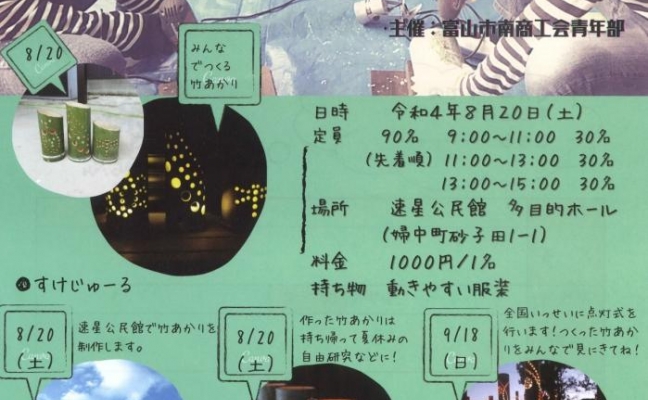 主催：富山市南商工会青年部
8/20
みんな
でつくる
竹あかり
日時 令和4年8月20日(土)
定員 90名 9:00～11:00 30名
(先着順) 11:00～13:00 30名
13:00～15:00 30名
場所 速星公民館 多目的ホール
(婦中町砂子田1-1)
料金 1000円/1名
持ち物 動きやすい服装
すけじゅーる
8/20
(土)
速星公民館で竹あかりを
制作します。
8/20
(土)
作った竹あかりは
持ち帰って夏休みの
自由研究などに!
9/18
(日)
全国いっせいに点灯式を
行います!つくった竹あか
りをみんなで見にきてね!